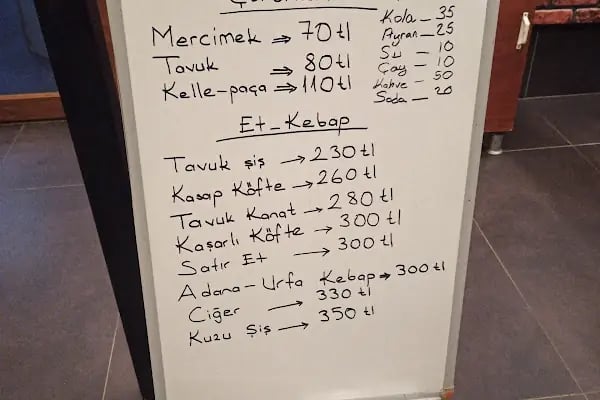 Mercimek ⇒ 70 tl
Tavuk ⇒ 80 tl
Kelle-paça ⇒ 110 tl
Kola - 35
Ayran - 25
Su - 10
Çay - 10
Kahve - 50
Soda - 20
Et-Kebap
Tavuk şiş → 230 tl
Kasap Köfte → 260 tl
Tavuk Kanat → 280 tl
Kaşarlı Köfte → 300 tl
Satır Et → 300 tl
Adana-Urfa Kebap → 300 tl
Ciğer → 330 tl
Kuzu Şiş → 350 tl